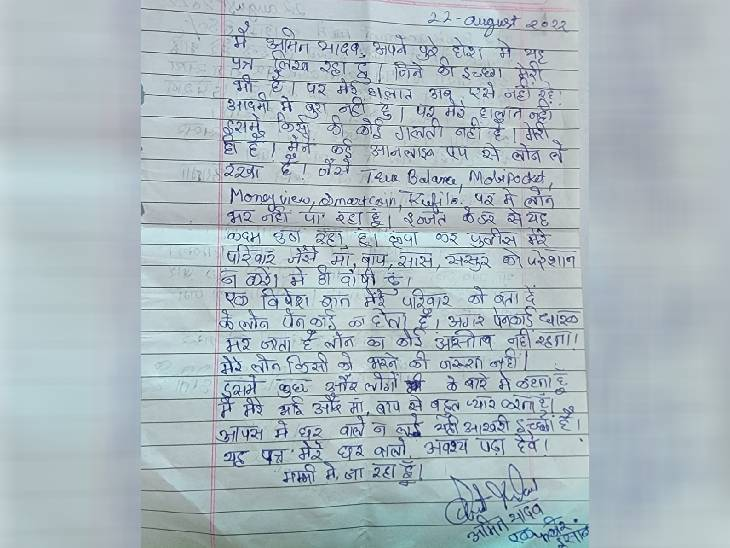 22-august 2022
मैं अमित यादव, अपने पुरे होश मे यह
पत्र लिख रहा हु। जिने की इच्छा मेरी
भी है। पर मेरे हालात अब ऐसे नही रहे।
आदमी मे बुरा नही हु। पर मेरे हालात नही।
इसमे किसी की कोई गलती नही है। मेरी
ही है। मैने कई आनलाइन एप से लोन ले
रखा है। जैसे True Balance, MobiPocket,
Moneyview, smartcoin, Rufilo. पर मे लोन
भर नही पा रहा हूं। इज्जत के डर से यह
कदम उठा रहा हूं। कृपा कर पुलीस मेरे
परिवार जैसे मां, बाप, सास, ससुर को परेशान
न करे। मे ही दोषी हुं।
एक विषेश बात मेरे परिवार को बता दे
के लोन पेनकार्ड का होता है। अगर पेनकार्ड धारक
मर जाता है लोन का कोई अस्तीत्व नही रहता।
मेरे लोन किसी को भरने की जरुरत नही।
इसमे कुछ और लोगों के बारे मे कहना है
मै मेरे भाई और मां, बाप से बहुत प्यार करता हूं।
आपस मे घर वाले न लड़े यही आखरी इच्छा है।
यह पत्र मेरे घर वालो अवश्य पढ़ा देवे।
मम्मी मे जा रहा हूँ।
अमित यादव
एक
इंसान